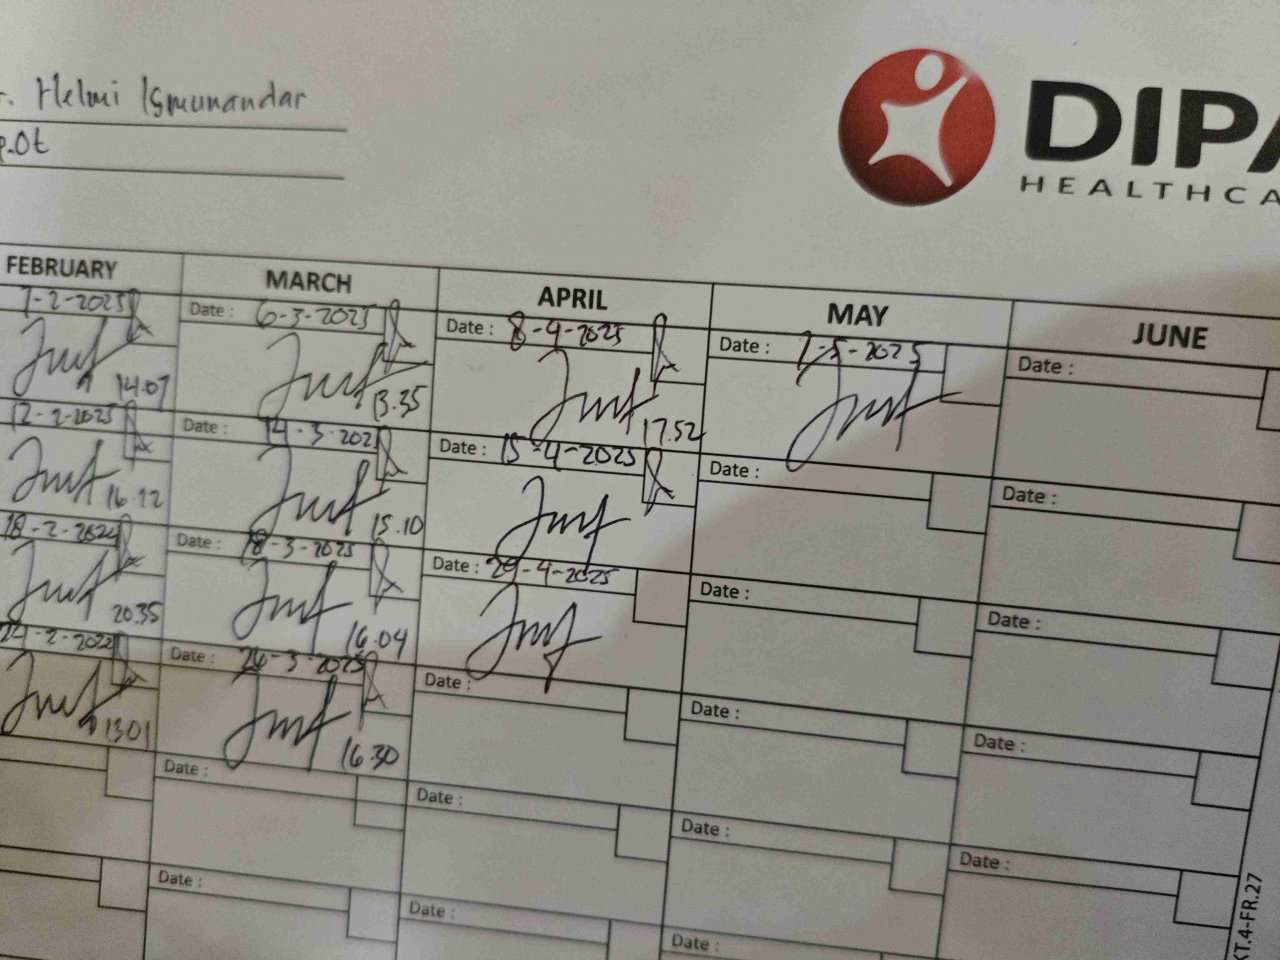 Helmi Ismunandar
DIPA
HEALTHCA
FEBRUARY MARCH APRIL MAY JUNE
7-2-2025 Date : 6-3-2025 Date : 8-4-2025 Date : 7-5-2025 Date :
14.07 13.35 17.52
12-2-2025 Date : 14-3-202 Date : 15-4-2025 Date : Date :
16.12 15.10
18-2-202 Date : 18-3-2025 Date : 29-4-2025 Date : Date :
20.35 16.04
24-2-202 Date : 26-3-2025 Date : Date : Date :
13.01 16.30
Date : Date : Date : Date :
Date : Date : Date :
KT.4-FR.27